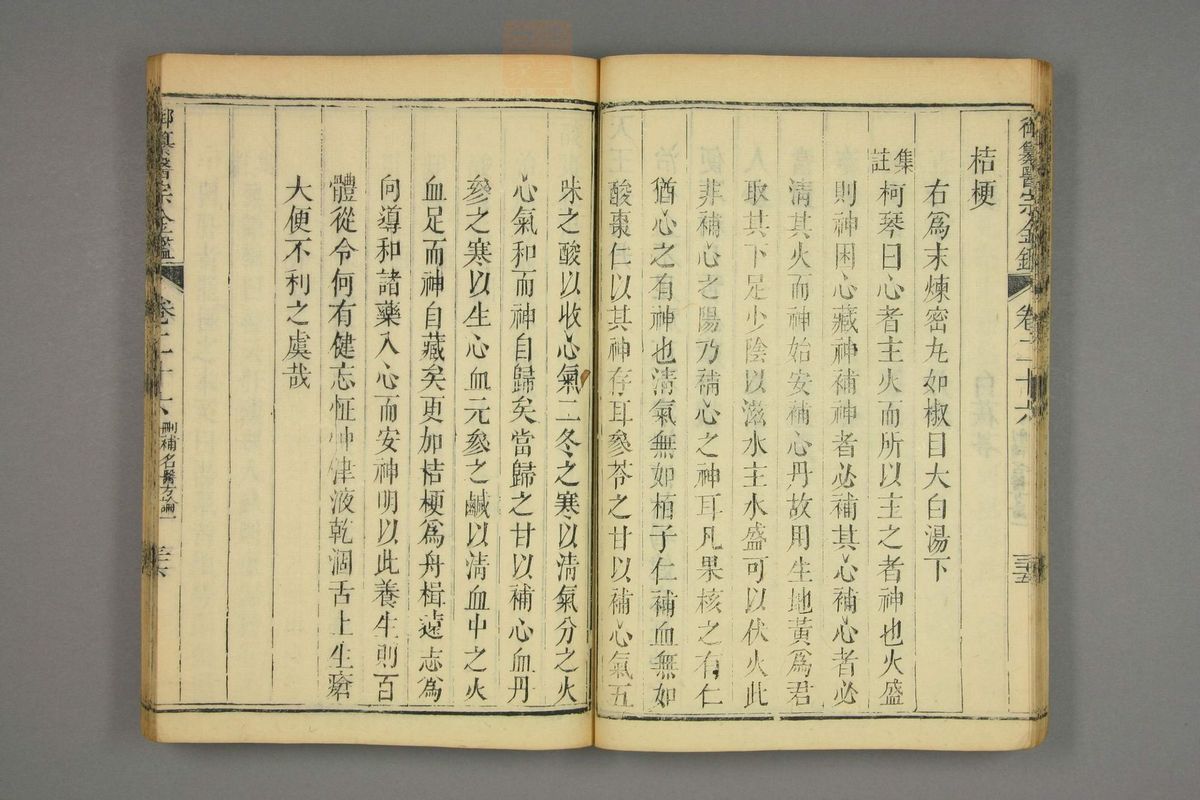 御纂醫宗金鑑 卷二十六 三十五
桔梗
右爲末煉密丸如椒目大白湯下
集註柯琴曰心者主火而所以主之者神也火盛
則神困心藏神補神者必補其心補心者必
清其火而神始安補心丹故用生地黃爲君
取其下足少陰以滋水主水盛可以伏火此
非補心之陽乃補心之神耳凡果核之有仁
猶心之有神也清氣無如栢子仁補血無如
酸棗仁以其神存耳參苓之甘以補心氣五
味之酸以收心氣二冬之寒以清氣分之火
心氣和而神自歸矣當歸之甘以補心血丹
參之寒以生心血元參之鹹以清血中之火
血足而神自藏矣更加桔梗爲舟楫遠志爲
向導和諸藥入心而安神明以此養生則百
體從令何有健忘怔忡津液乾涸舌上生瘡
大便不利之虞哉
御纂醫宗金鑑 卷二十六 刪補名醫方論一 三十六